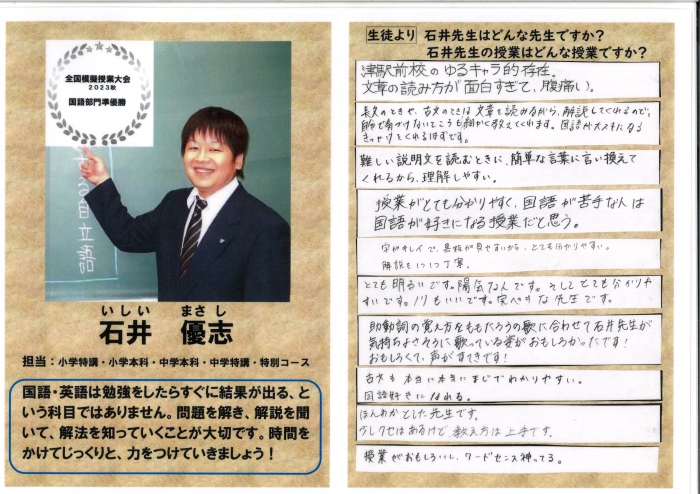 全国模擬授業大会
2023秋
国語部門準優勝
る自立語
いしい まさし
石井 優志
担当：小学特講・小学本科・中学本科・中学特講・特別コース
国語・英語は勉強をしたらすぐに結果が出る、と
いう科目ではありません。問題を解き、解説を聞
いて、解法を知っていくことが大切です。時間を
かけてじっくりと、力をつけていきましょう！
生徒より 石井先生はどんな先生ですか？
石井先生の授業はどんな授業ですか？
津駅前校のゆるキャラ的存在。
文章の読み方が面白すぎて、腹痛い。
長文のときや、古文のときは文章を読みながら、解説してくれるので、
自分で気づけないところも細かく教えてくれます。国語が大スキになる
きっかけをくれるはずです。
難しい説明文を読むときに、簡単な言葉に言い換えて
くれるから、理解しやすい。
授業がとても分かりやすく、国語が苦手な人は
国語が好きになる授業だと思う。
字がキレイで、黒板が見やすいから、とても分かりやすい。
解説も1つ1つ丁寧。
とても明るいです。陽気な人です。そしてとても分かりや
すいです。ノリもいいです。完ぺきな先生です。
助動詞の覚え方をももたろうの歌に合わせて石井先生が
気持ちよさそうに歌っている姿がおもしろかったです！
おもしろくて、声がすてきです！
古文も本当に本当にまじでわかりやすい。
国語好きになれる。
ほんわかとした先生です。
少しクセはあるけど教え方は上手です。
授業がおもしろいし、ワードセンス神ってる。